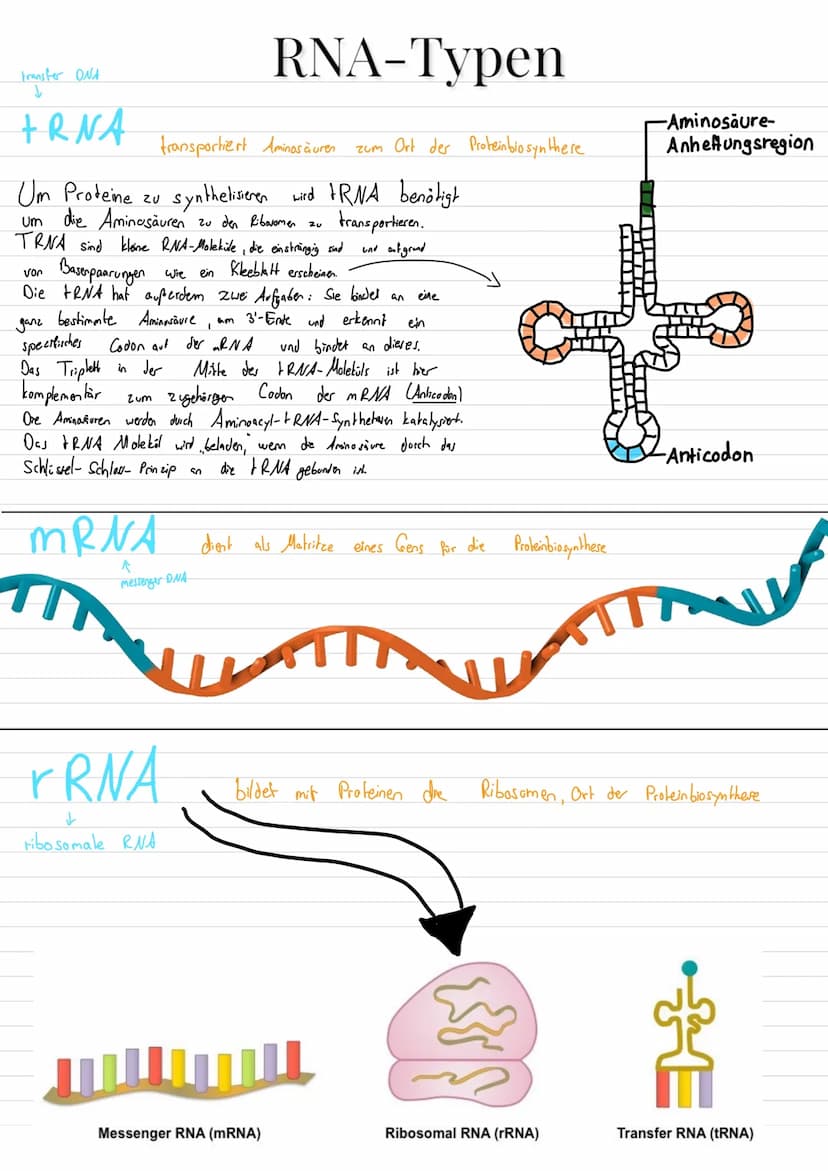 RNA-Typen
transfer DNA
tRNA
transportiert Aminosäuren zum Ort der Proteinbiosynthese
Aminosäure-
Anheftungsregion
Um Proteine zu synthelisieren wird tRNA benötigt
um die Aminosäuren zu den Ribosomen zu transportieren.
TRNA sind kleine RNA-Moleküle, die einsträngig sind und aufgrund
von Basenpaarungen wie ein Kleeblatt erscheinen.
Die tRNA hat außerdem zwei Aufgaben: Sie bindet an eine
ganz bestimmte Aminosäure, am 3'-Ende und erkennt ein
spezifisches Codon auf der mRNA und bindet an dieses.
Das Triplett in der Mitte des tRNA-Moleküls ist hier
komplementär zum zugehörgen Codon der mRNA (Anticodon)
Die Aminosäuren werden durch Aminoacyl-tRNA-Synthetasen katalysiert.
Das tRNA Molekül wird „beladen," wenn die Aminosäure durch das
Schlüssel-Schloss-Prinzip an die tRNA gebunden ist.
Anticodon
mRNA
dient als Matritze eines Gens für die Proteinbiosynthese
messenger DNA
rRNA
bildet mit Proteinen die Ribosomen, Ort der Proteinbiosynthese
ribosomale RNA
Messenger RNA (mRNA)
Ribosomal RNA (rRNA)
Transfer RNA (tRNA)